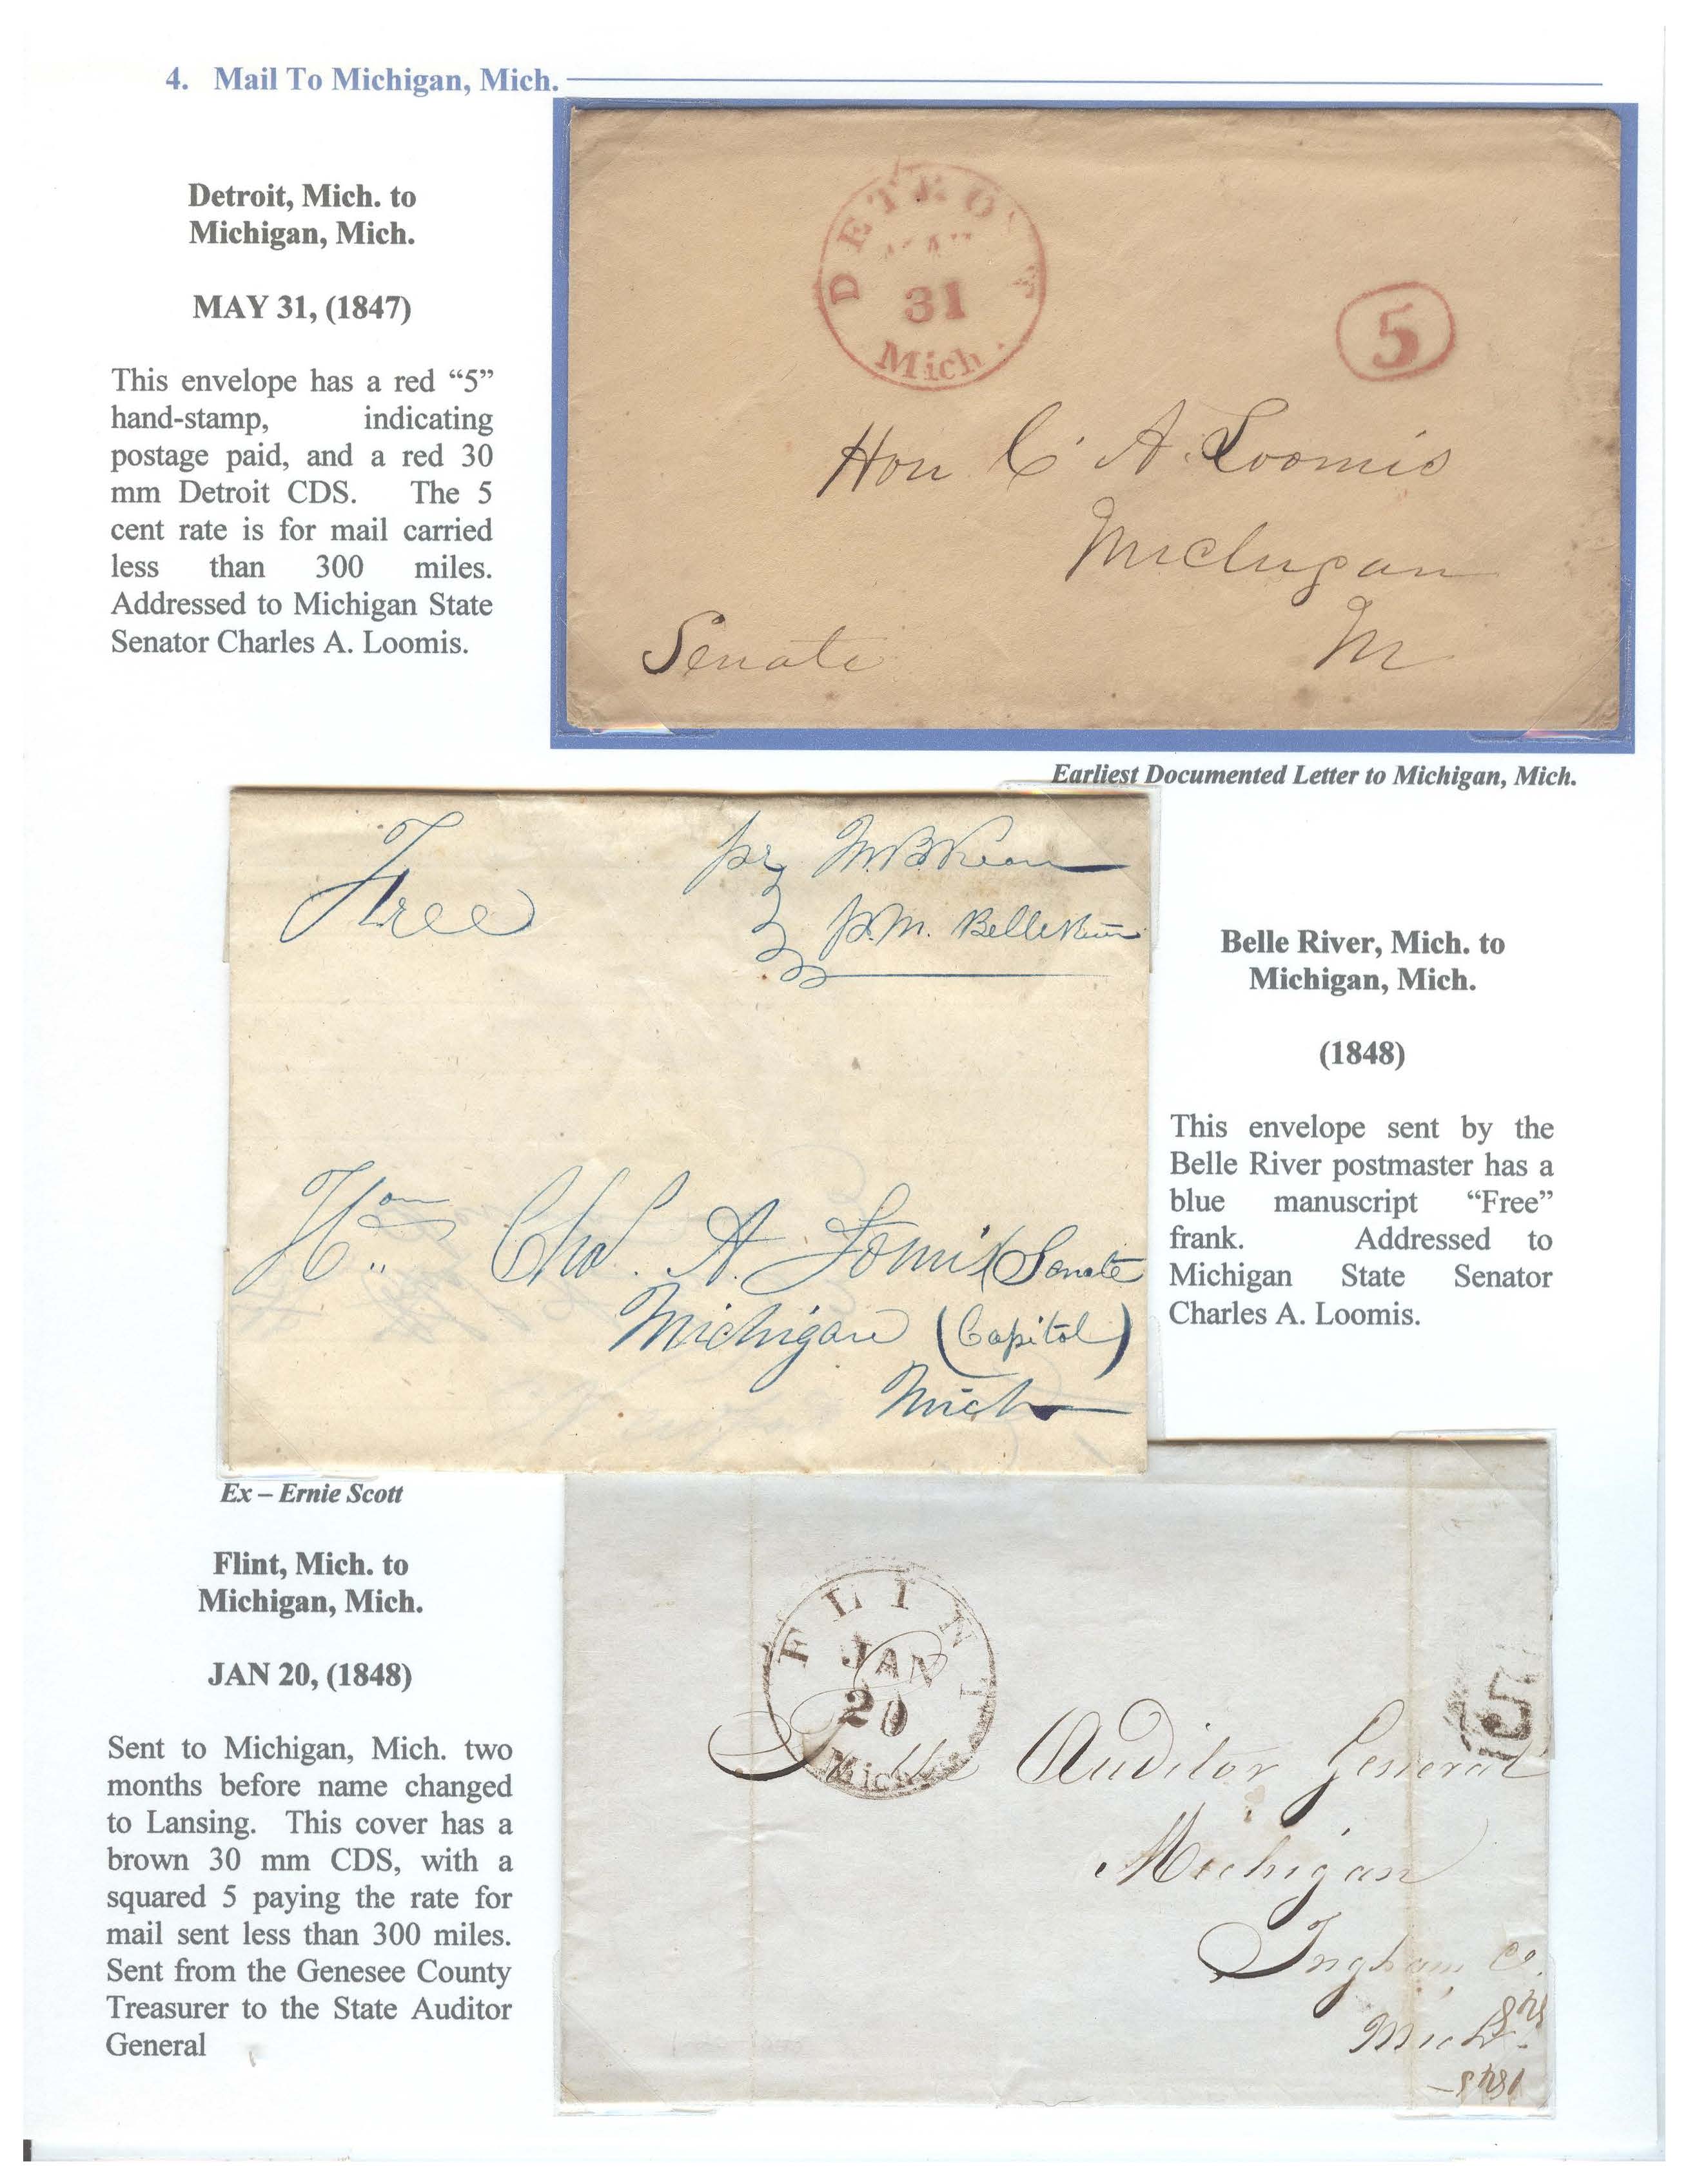 4. Mail To Michigan, Mich.
Detroit, Mich. to
Michigan, Mich.
MAY 31, (1847)
This envelope has a red “5”
hand-stamp, indicating
postage paid, and a red 30
mm Detroit CDS. The 5
cent rate is for mail carried
less than 300 miles.
Addressed to Michigan State
Senator Charles A. Loomis.
DETROIT
31
Mich.
5
Hon C A Loomis
Michigan
M
Senate
Earliest Documented Letter to Michigan, Mich.
Free
P.M. Belle River
Hon Chs. A. Lomis (Senate
Michigan (Capitol)
Mich
Belle River, Mich. to
Michigan, Mich.
(1848)
This envelope sent by the
Belle River postmaster has a
blue manuscript “Free”
frank. Addressed to
Michigan State Senator
Charles A. Loomis.
Ex – Ernie Scott
Flint, Mich. to
Michigan, Mich.
JAN 20, (1848)
Sent to Michigan, Mich. two
months before name changed
to Lansing. This cover has a
brown 30 mm CDS, with a
squared 5 paying the rate for
mail sent less than 300 miles.
Sent from the Genesee County
Treasurer to the State Auditor
General
FLINT
JAN
20
Mich
5
To the Auditor General
Michigan
Ingham Co.
Mich.
1848